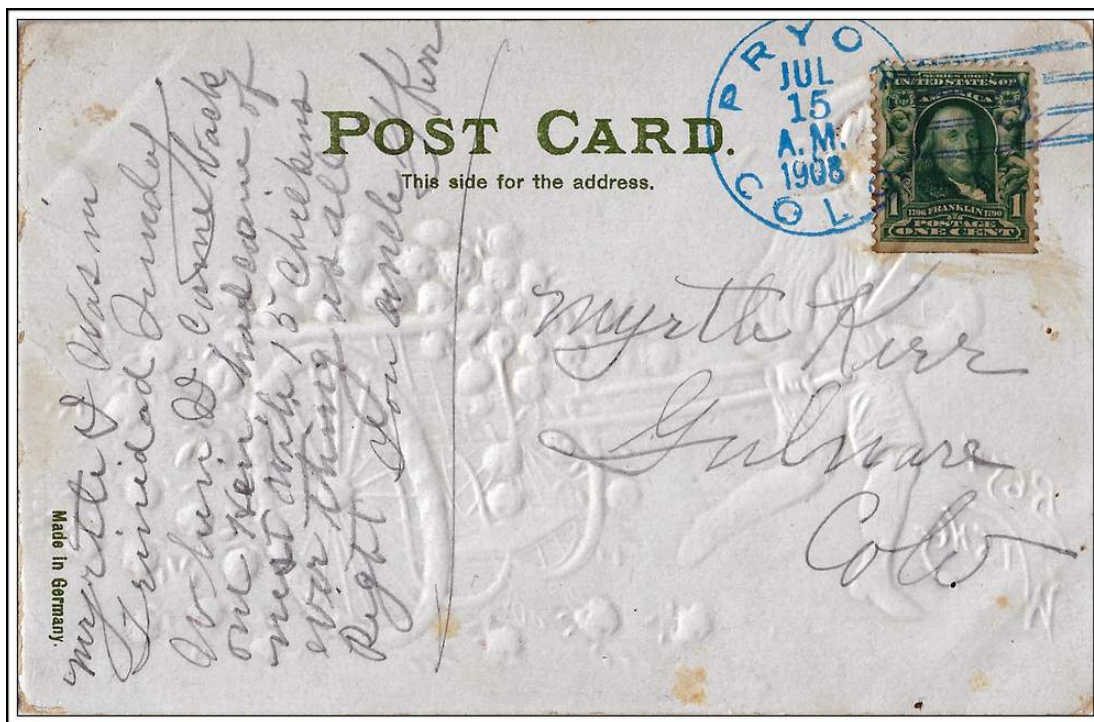 POST CARD.
This side for the address.
PRYO
COLO
JUL
15
A.M.
1908
SERIES 1902
UNITED STATES OF
AMERICA
1 1706 FRANKLIN 1790 1
POSTAGE
ONE CENT
Myrtle I was in
Trinidad Sunday
When I came back
one hen had came of
nest with 15 chickens
ever thing is all
Right your uncle Kerr
Myrtle Kerr
Gulnare
Colo
Made in Germany.